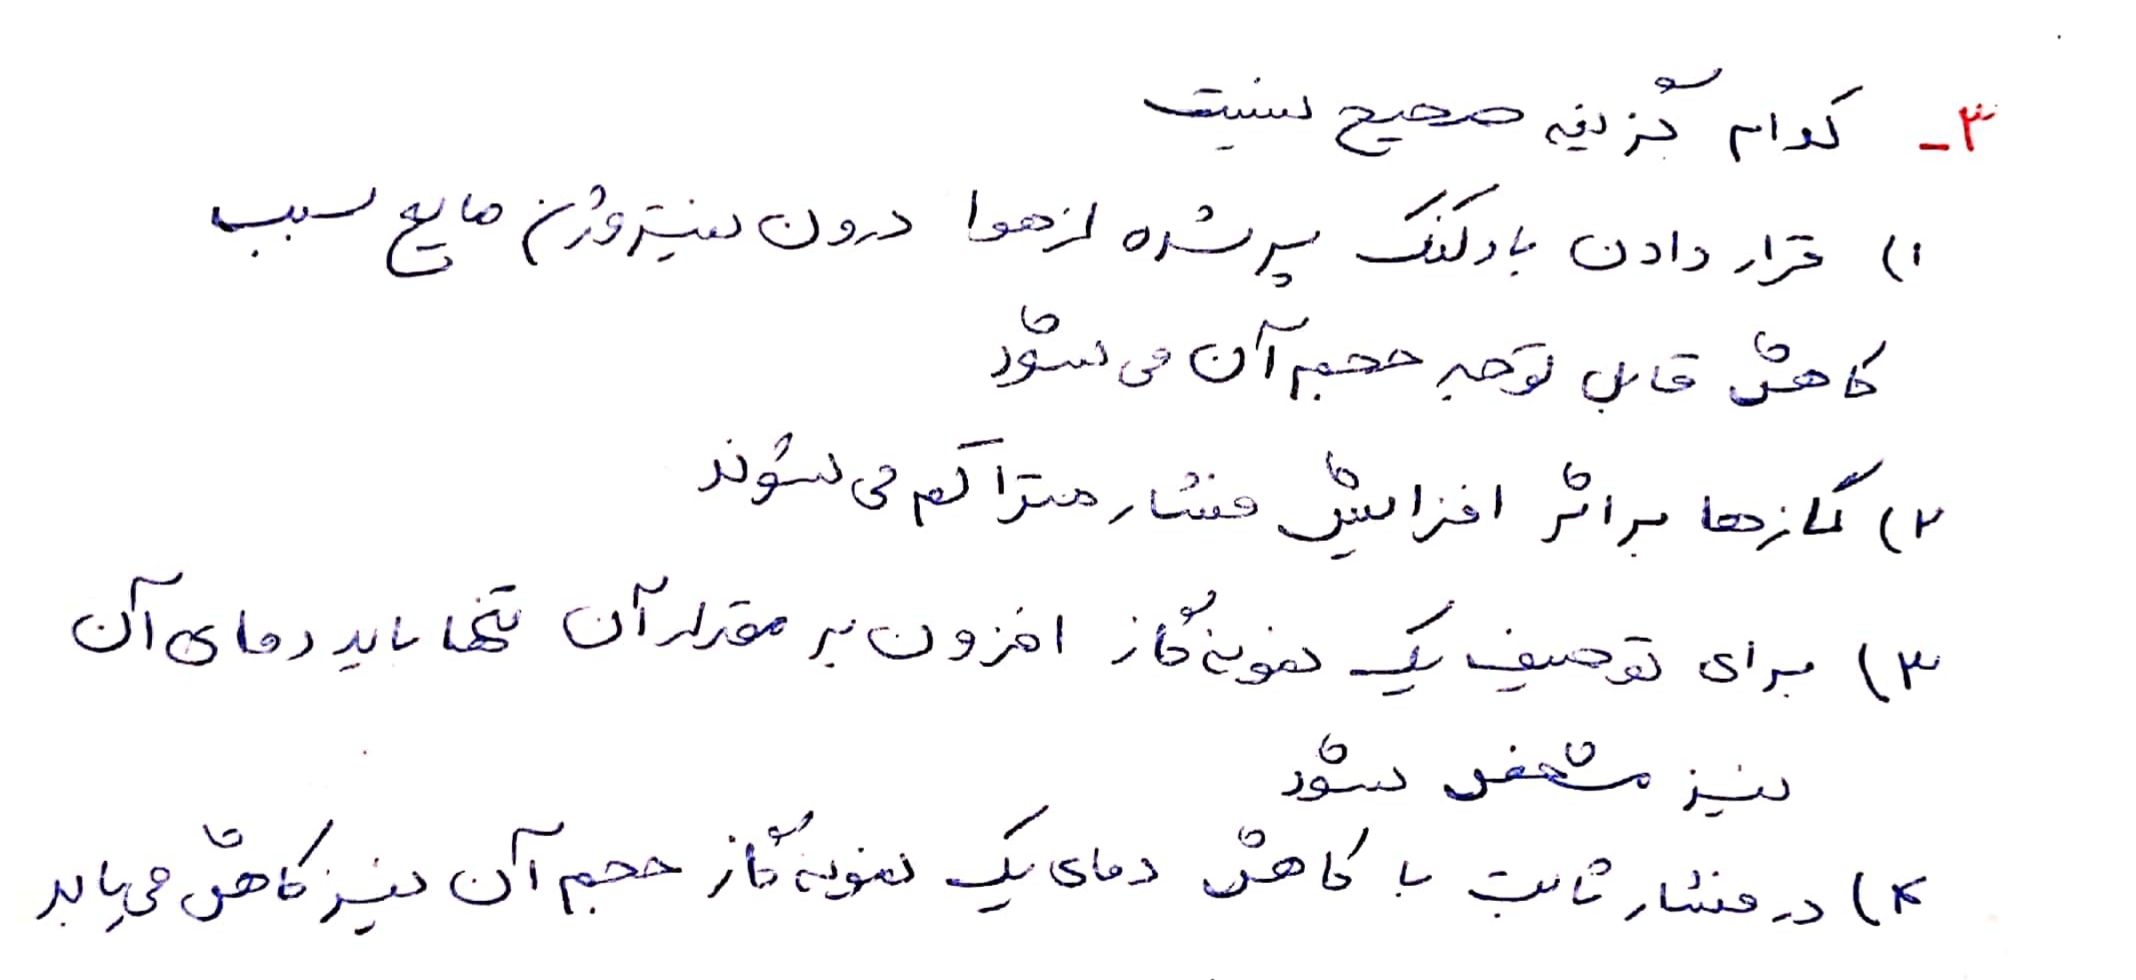 ۳- کدام گزینه صحیح نیست
۱) قرار دادن بادکنک پر شده از هوا درون نیتروژن مایع سبب
کاهش قابل توجه حجم آن می شود
۲) گازها بر اثر افزایش فشار متراکم می شوند
۳) برای توصیف یک نمونه گاز افزون بر مقدار آن تنها باید دمای آن
نیز مشخص شود
۴) در فشار ثابت با کاهش دمای یک نمونه گاز حجم آن نیز کاهش می یابد